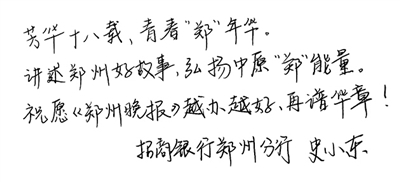 芳华十八载，青春“郑”年华。
讲述郑州好故事，弘扬中原“郑”能量。
祝愿《郑州晚报》越办越好，再谱华章！
招商银行郑州分行 史小东